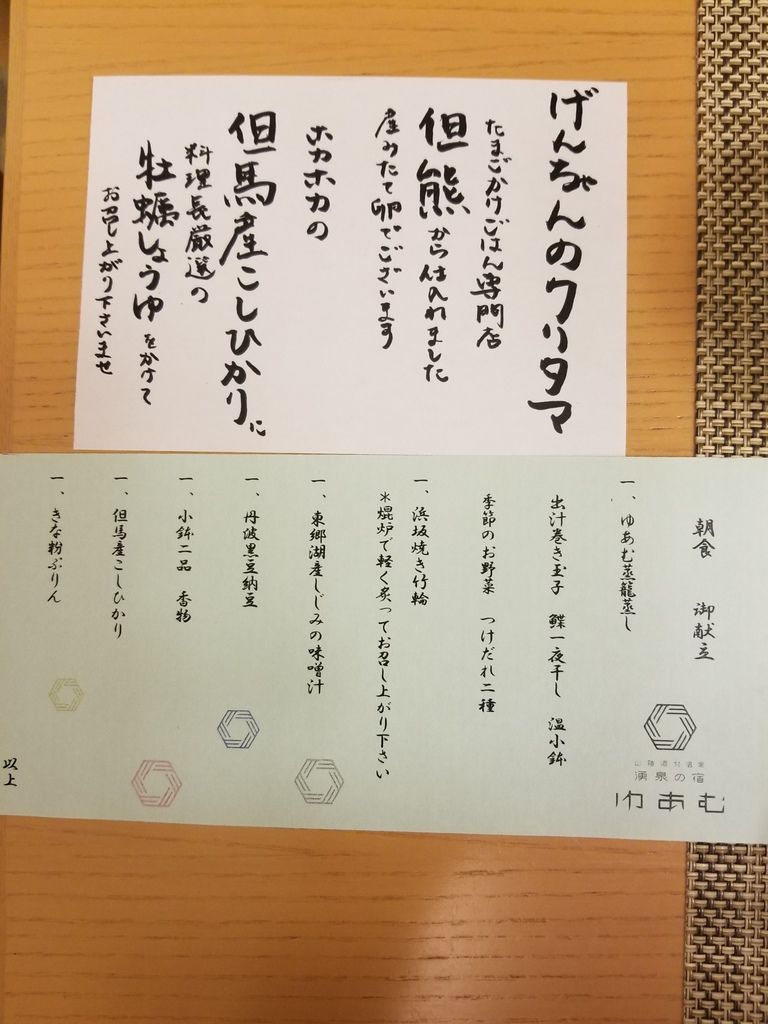 げんちゃんのクリタマ
たまごかけごはん専門店
但熊から仕入れました
産みたて卵でございます
ホカホカの
但馬産こしひかりに
料理長厳選の
牡蠣しょうゆをかけて
お召し上がり下さいませ
朝食 御献立
一、ゆあむ蒸籠蒸し
出汁巻き玉子 鰈一夜干し 温小鉢
季節のお野菜 つけだれ二種
一、浜坂焼き竹輪
*焜炉で軽く炙ってお召し上がり下さい
一、東郷湖産しじみの味噌汁
一、丹波黒豆納豆
一、小鉢二品 香物
一、但馬産こしひかり
一、きな粉ぷりん
以上
湧泉の宿
ゆあむ